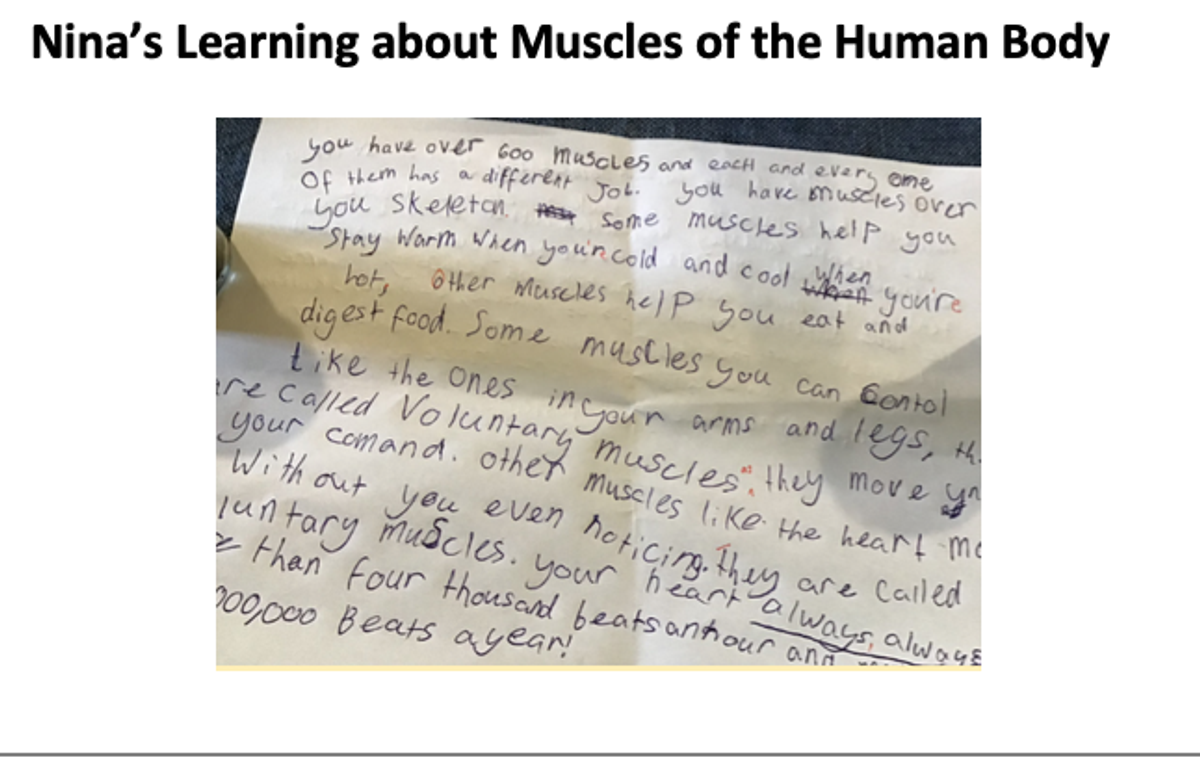 Nina's Learning about Muscles of the Human Body
you have over 600 muscles and each and every one
Of them has a different Job. you have muscles over
you skeleton. some muscles help you
Stay Warm When you're cold and cool When you're
hot, other Muscles help you eat and
digest food. Some muscles you can Contol
Like the ones in your arms and legs, th
re called Voluntary muscles: they move
your comand. other muscles like the heart m
Without you even noticing. They are called
luntary muscles. your heart always, always
than four thousand beats anhour and
000,000 Beats a year!